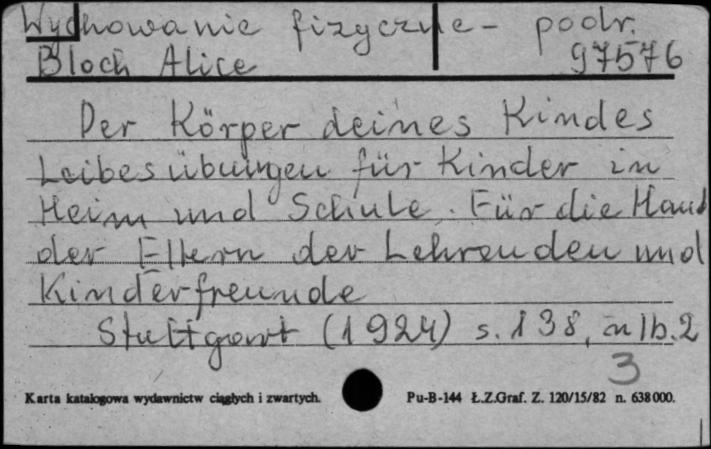 Wychowanie fizyczne - podr.
Bloch Alice 97576
Der Körper deines Kindes
Leibesübungen für Kinder in
Heim und Schule. Für die Hand
der Eltern der Lehrenden und
Kinderfreunde
Stuttgart (1924) s. 138, nlb. 2
3
Karta katalogowa wydawnictw ciągłych i zwartych. Pu-B-144 Ł.Z.Graf. Z. 120/15/82 n. 638000.